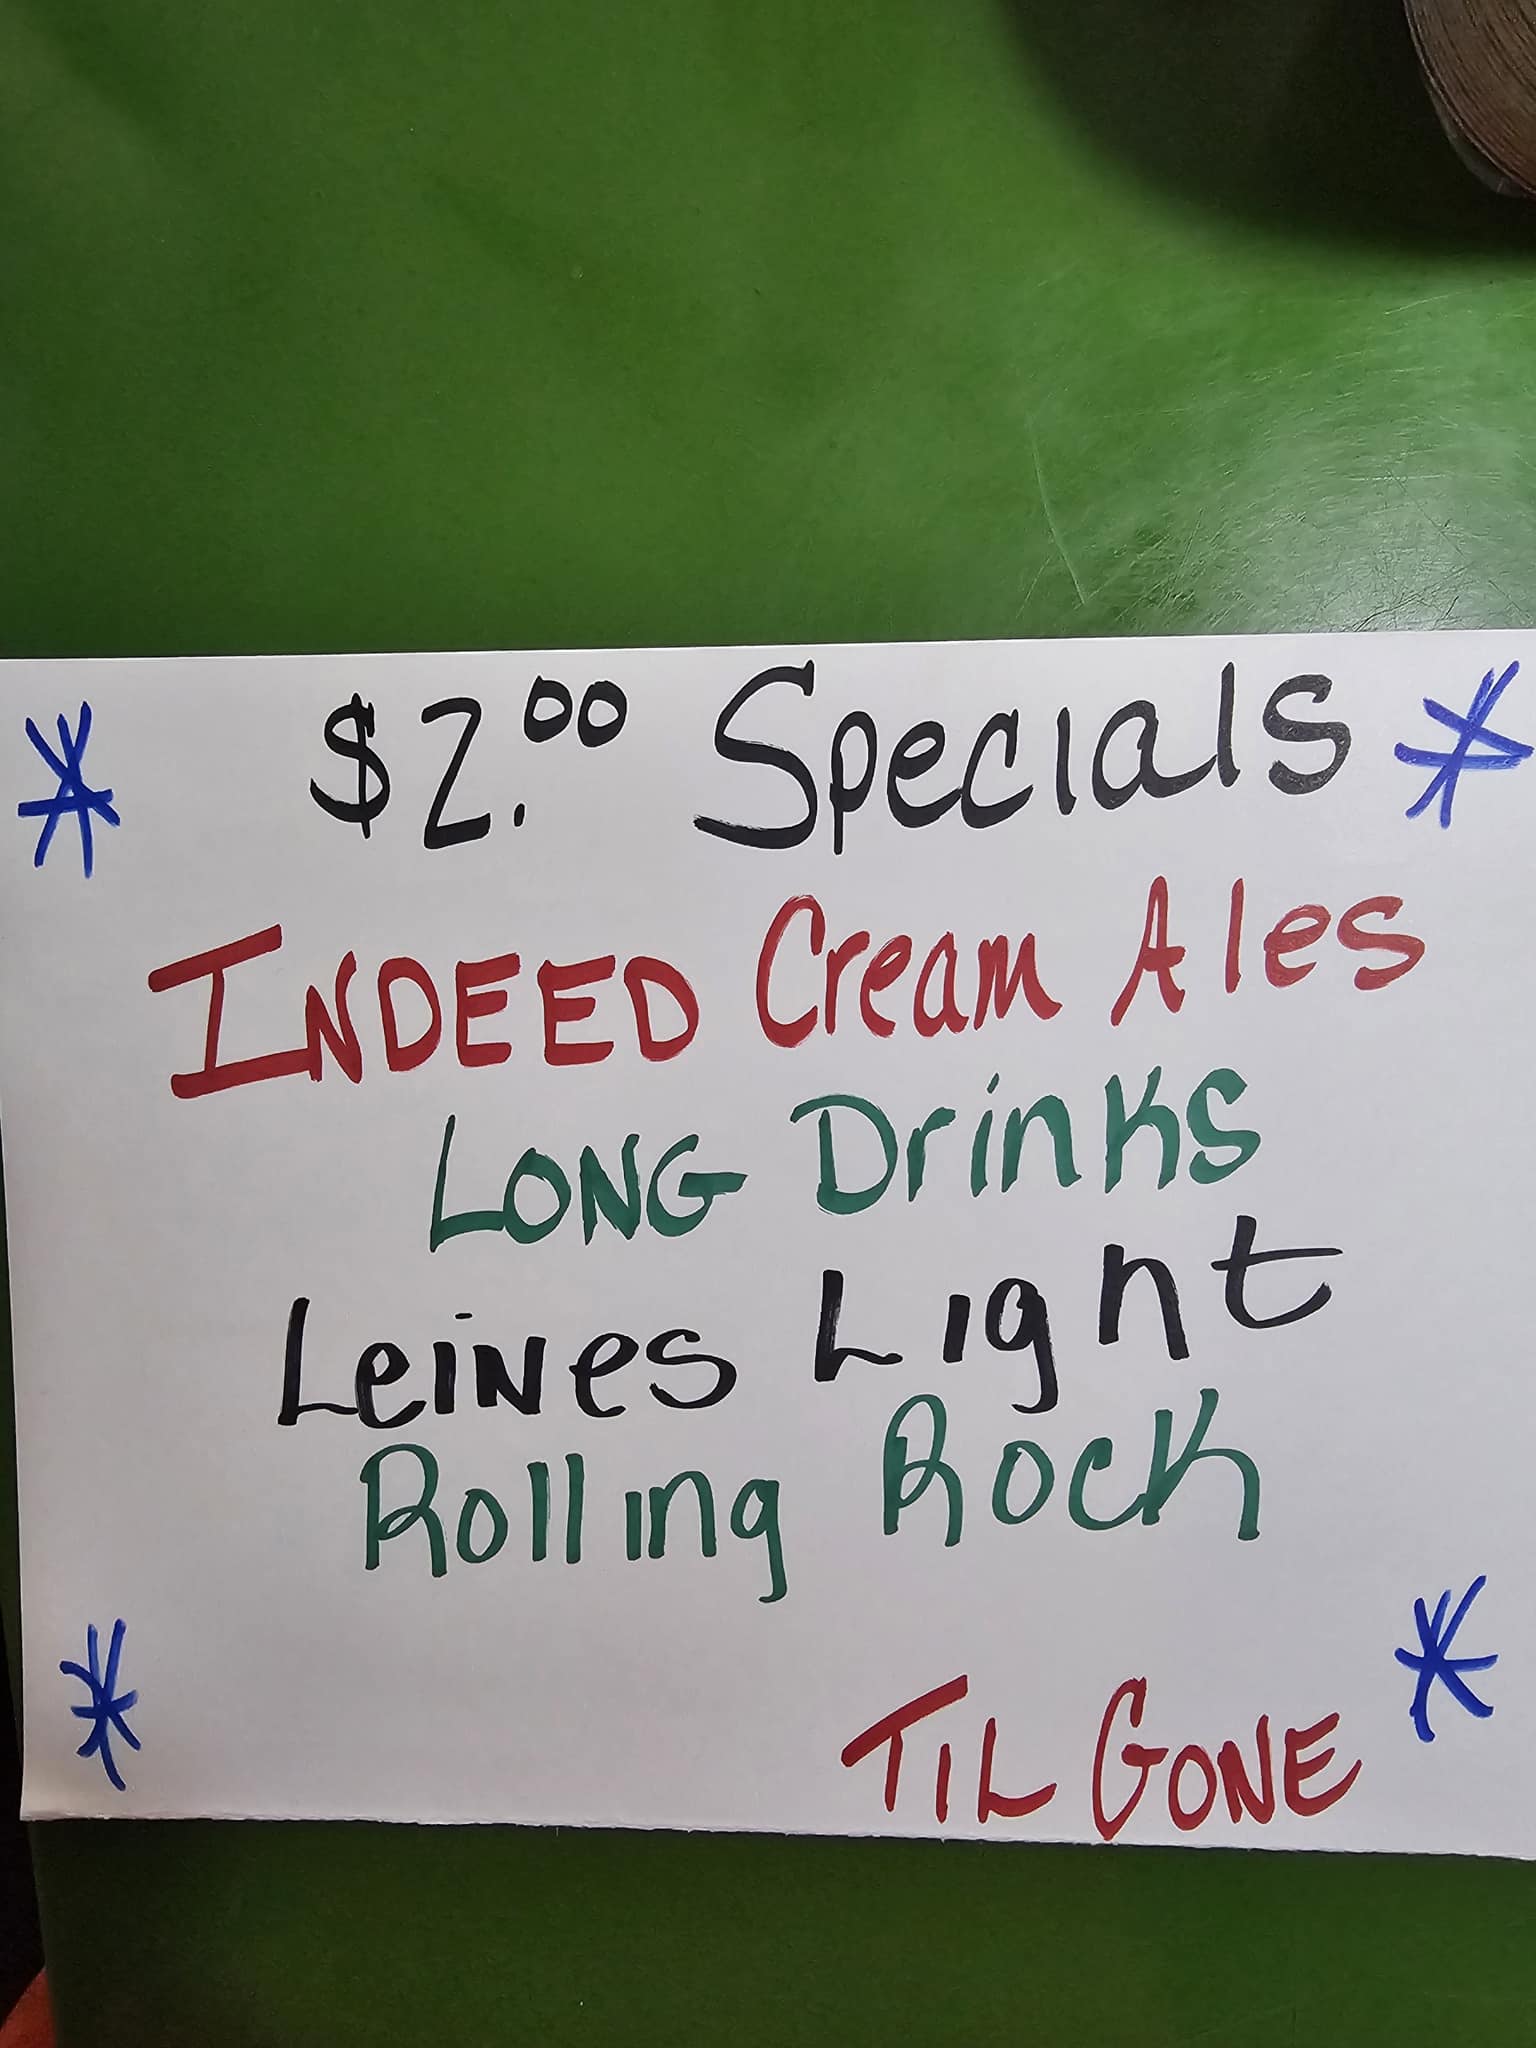 $2.00 Specials
INDEED Cream Ales
LONG Drinks
Leines Light
Rolling Rock
TIL GONE